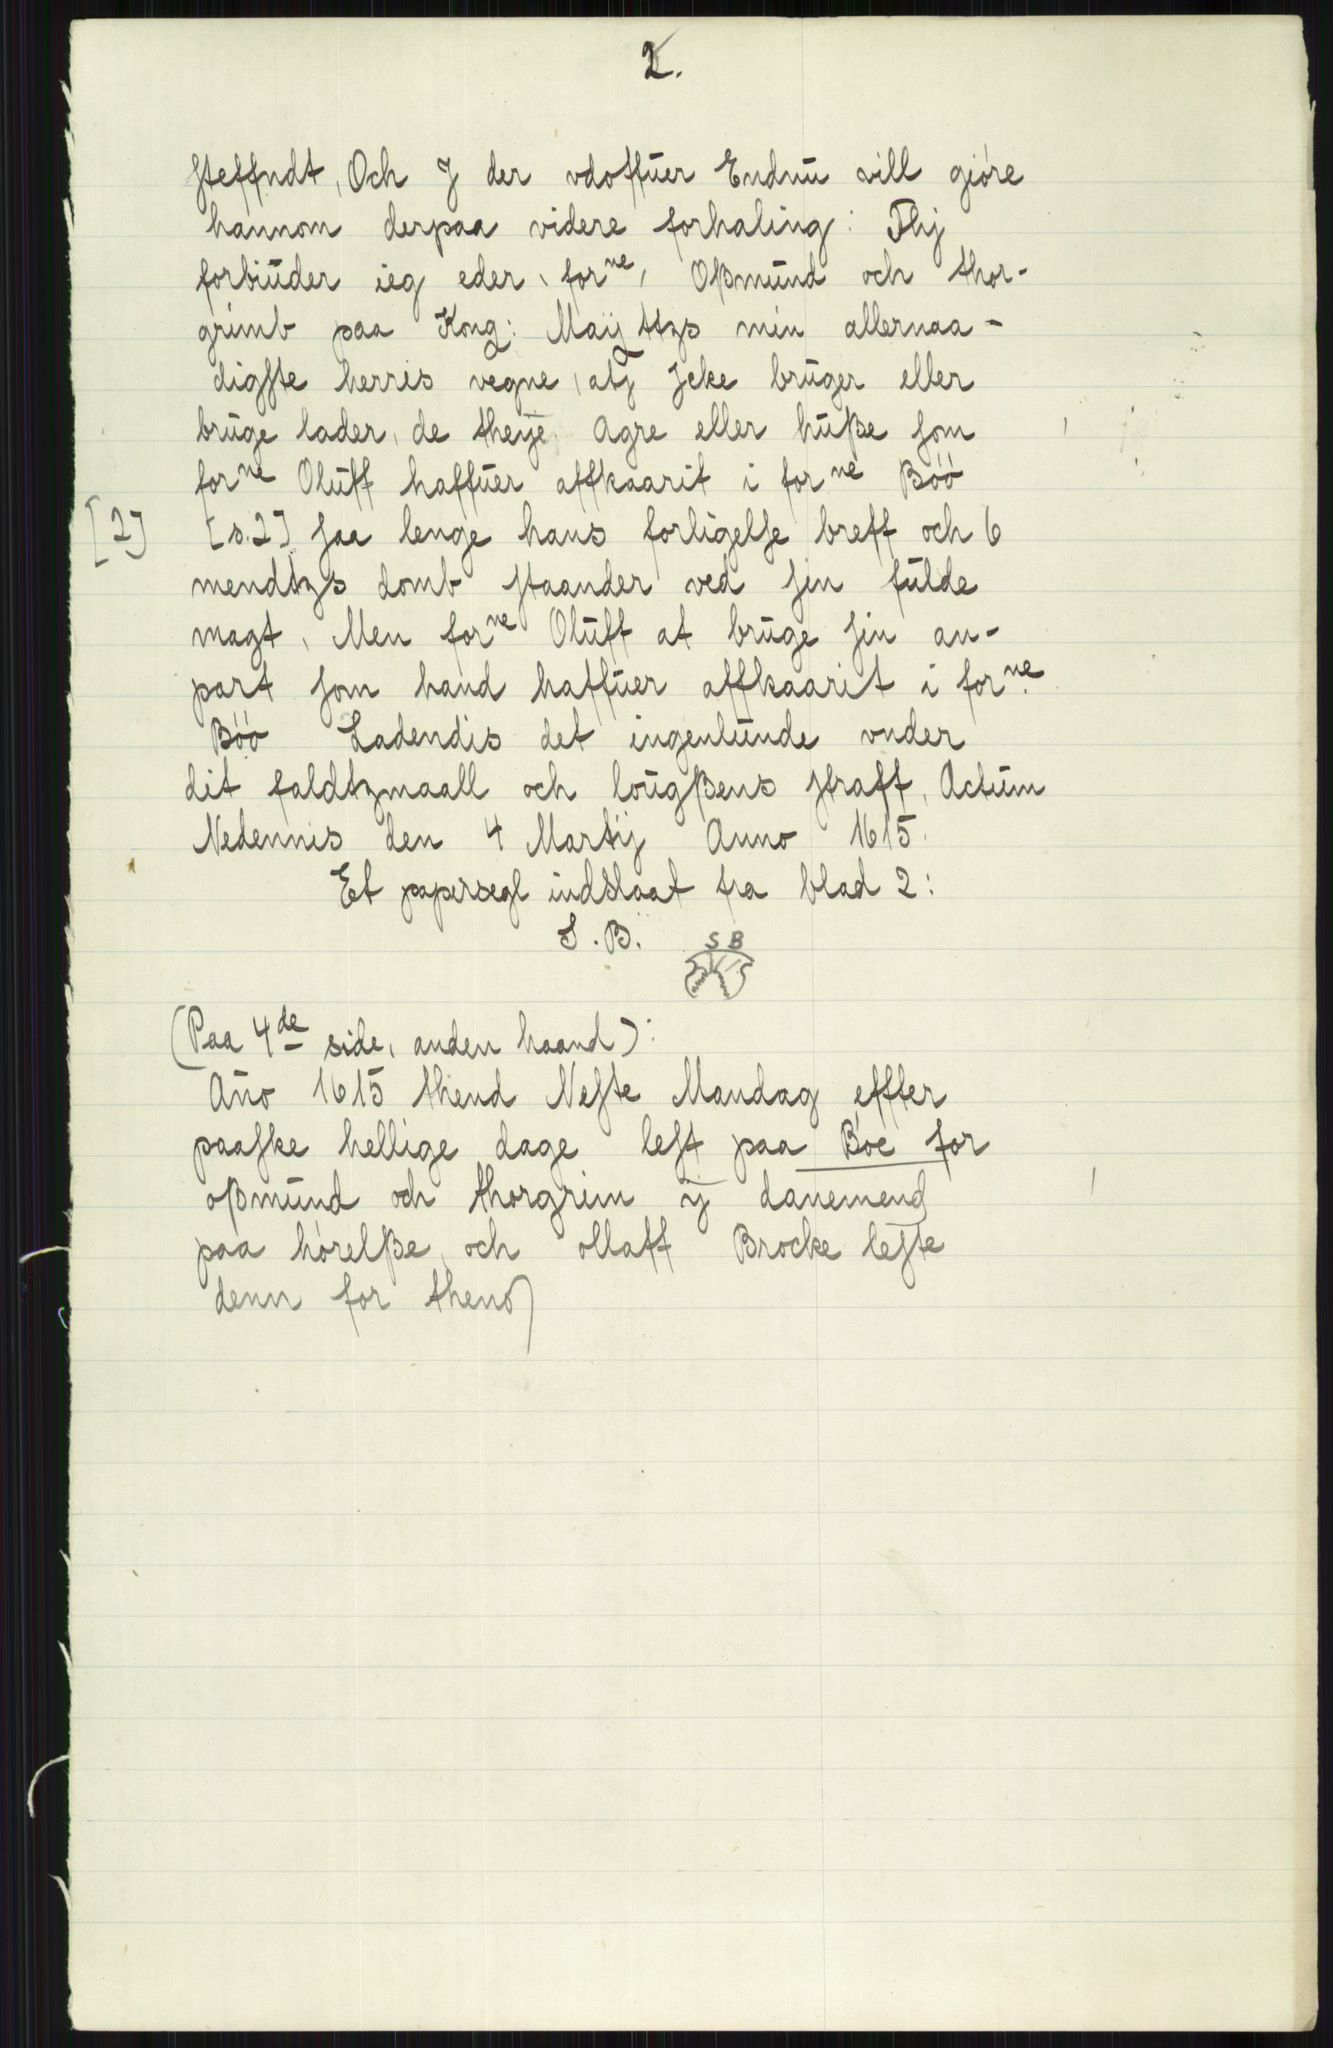 2.
steffndt, Och J der vdoffuer Endnu vill gióre
hannom derpaa videre forhaling: Thij
forbiuder ieg eder, forne, Oßmund och thor-
grimb paa Kong: Maij ttzs min allernaa-
digste herris vegne, atj Jcke bruger eller
bruge lader, de theije Agre eller huße som
forne Oluff haffuer affkaarit i forne Bóó
[2] [s.2] saa lenge hans forligelse breff och 6
mendtzs domb staander ved sin fulde
magt, Men forne Oluff at bruge sin an-
part som hand haffuer affkaarit i forne
Bóó Ladendis det ingenlunde vnder
dit faldtzmaall och lougßens straff, Actum
Nedennis den 4 Martij Anno 1615.
Et papersegl indslaat fra blad 2:
S. B. S B
(Paa 4de side, anden haand):
Año 1615 thend Neste Mandag effter
paaske hellige dage lest paa Bóe for
oßmund och thorgrim ij danemend
paa hórelße, och ollaff Brocke leste
denn for thend